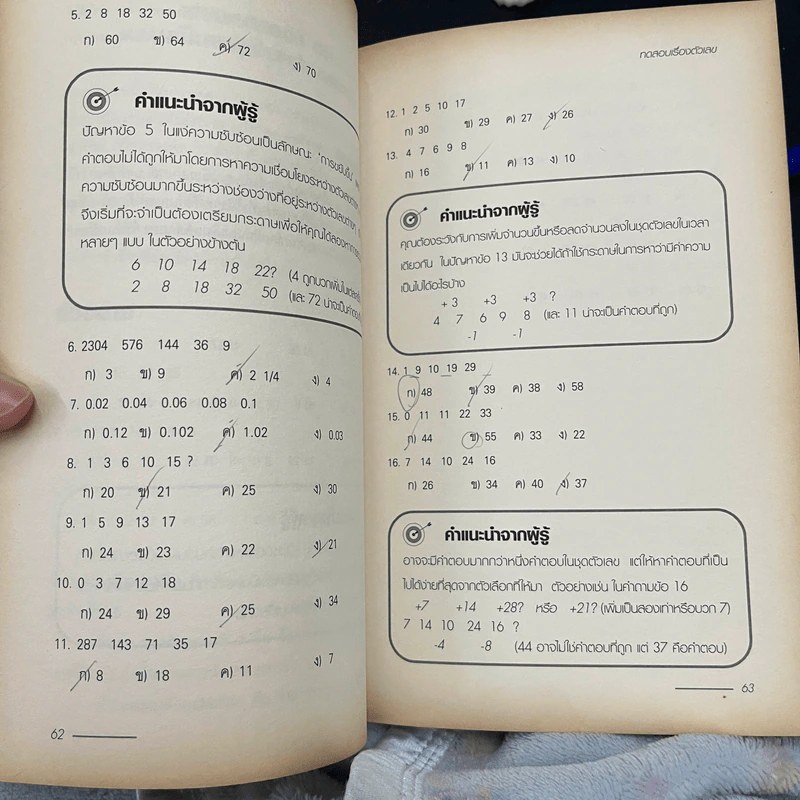 5. 2 8 18 32 50
ก) 60 ข) 64 ค) 72 ง) 70
คำแนะนำจากผู้รู้
ปัญหาข้อ 5 ในแง่ความซับซ้อนเป็นลักษณะ "การขยับขึ้น"
คำตอบไม่ได้ถูกให้มาโดยการหาความเชื่อมโยงระหว่างตัวเลข
ความซับซ้อนมากขึ้นระหว่างช่องว่างที่อยู่ระหว่างตัวเลข
จึงเริ่มที่จะจำเป็นต้องเตรียมกระดาษเพื่อให้คุณได้ลอง
หลายๆ แบบ ในตัวอย่างข้างต้น
6 10 14 18 22? (4 ถูกบวกเพิ่ม
2 8 18 32 50 (และ 72 น่าจะเป็น
6. 2304 576 144 36 9
ก) 3 ข) 9 ค) 2 1/4 ง) 4
7. 0.02 0.04 0.06 0.08 0.1
ก) 0.12 ข) 0.102 ค) 1.02 ง) 0.03
8. 1 3 6 10 15 ?
ก) 20 ข) 21 ค) 25 ง) 30
9. 1 5 9 13 17
ก) 24 ข) 23 ค) 22 ง) 21
10. 0 3 7 12 18
ก) 24 ข) 29 ค) 25 ง) 34
11. 287 143 71 35 17
ก) 8 ข) 18 ค) 11 ง) 7
62
ทดสอบเรื่องตัวเลข
12. 1 2 5 10 17
ก) 30 ข) 29 ค) 27 ง) 26
13. 4 7 6 9 8
ก) 16 ข) 11 ค) 13 ง) 10
คำแนะนำจากผู้รู้
คุณต้องระวังกับการเพิ่มจำนวนขึ้นหรือลดจำนวนลงในชุดตัวเลขในเวลา
เดียวกัน ในปัญหาข้อ 13 มันจะช่วยได้ถ้าใช้กระดาษในการหาว่ามีค่าความ
เป็นไปได้อะไรบ้าง
+3 +3 +3 ?
4 7 6 9 8 (และ 11 น่าจะเป็นคำตอบที่ถูก)
-1 -1
14. 1 9 10 19 29
ก) 48 ข) 39 ค) 38 ง) 58
15. 0 11 11 22 33
ก) 44 ข) 55 ค) 33 ง) 22
16. 7 14 10 24 16
ก) 26 ข) 34 ค) 40 ง) 37
คำแนะนำจากผู้รู้
อาจจะมีคำตอบมากกว่าหนึ่งคำตอบในชุดตัวเลข แต่ให้หาคำตอบที่เป็น
ไปได้ง่ายที่สุดจากตัวเลือกที่ให้มา ตัวอย่างเช่น ในคำถามข้อ 16
+7 +14 +28? หรือ +21? (เพิ่มเป็นสองเท่าหรือบวก 7)
7 14 10 24 16 ?
-4 -8 (44 อาจไม่ใช่คำตอบที่ถูก แต่ 37 คือคำตอบ)
63